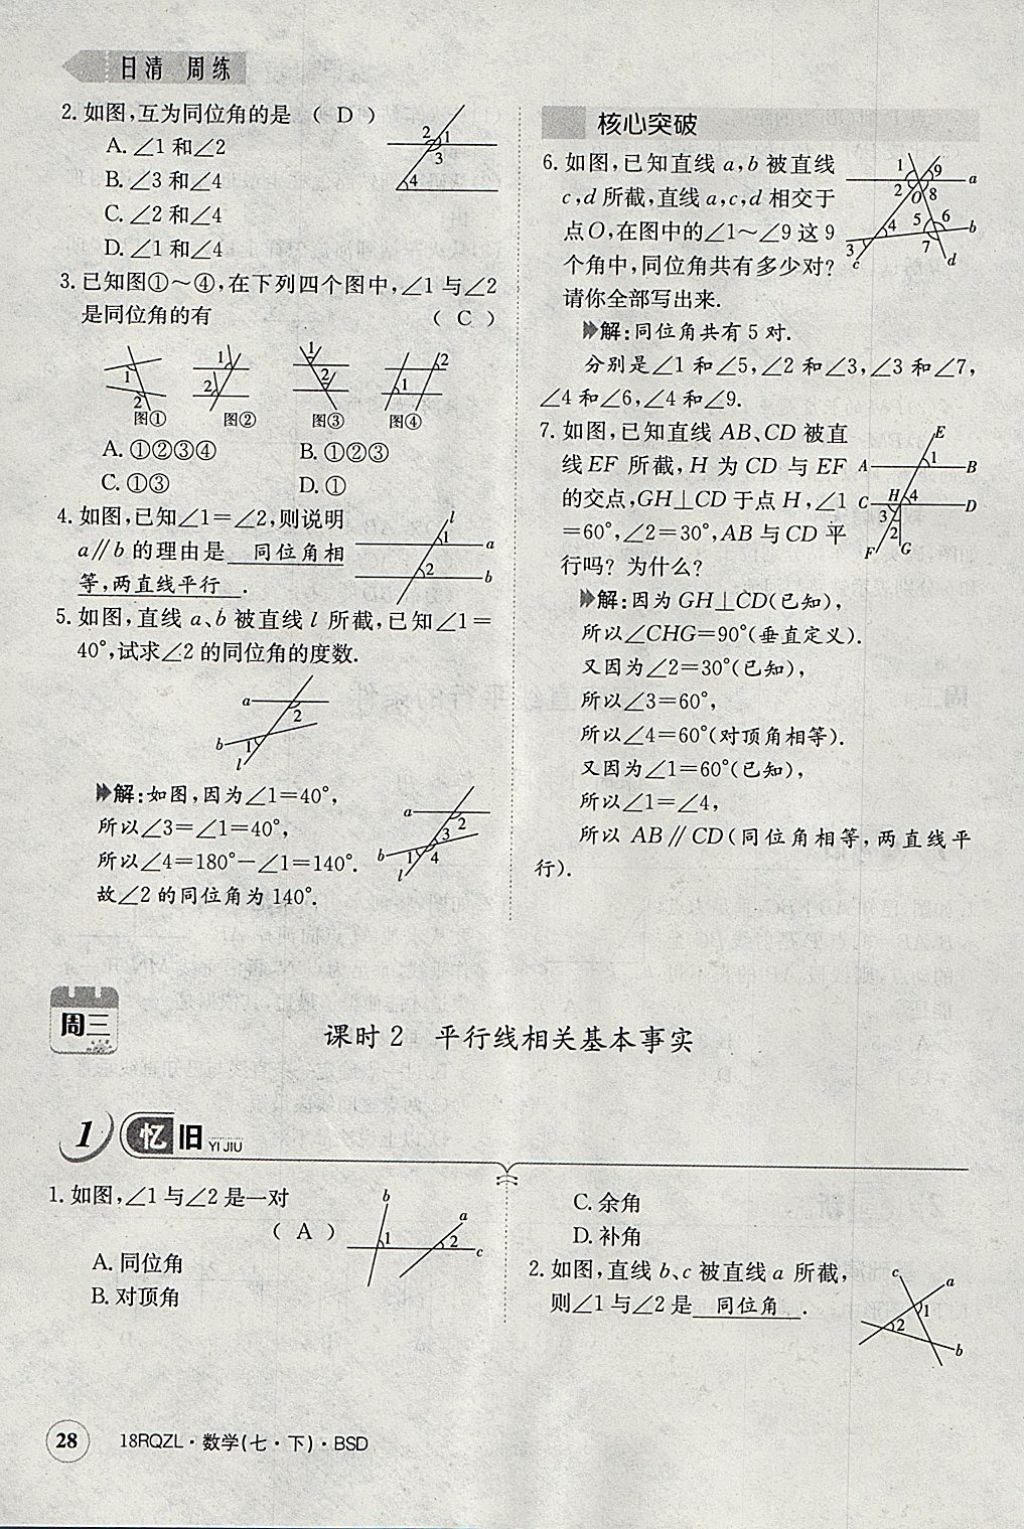 日清 周练
2.如图,互为同位角的是 ( D )
A.∠1和∠2
B.∠3和∠4
C.∠2和∠4
D.∠1和∠4
2 1
3
4
3.已知图①～④,在下列四个图中,∠1与∠2
是同位角的有 ( C )
1 1 1 2
2 2 2 1
图① 图② 图③ 图④
A.①②③④ B.①②③
C.①③ D.①
4.如图,已知∠1=∠2,则说明
a∥b的理由是 同位角相
等,两直线平行 .
l
1 a
2 b
5.如图,直线a、b被直线l所截,已知∠1=
40°,试求∠2的同位角的度数.
a 2
b 1
l
解:如图,因为∠1=40°,
所以∠3=∠1=40°,
所以∠4=180°-∠1=140°.
故∠2的同位角为140°.
a 2
3
b 1 4
l
核心突破
6.如图,已知直线a,b被直线
c,d所截,直线a,c,d相交于
点O,在图中的∠1～∠9这9
个角中,同位角共有多少对?
请你全部写出来.
1 9 a
2 O 8
4 5 6 b
3 7
c d
解:同位角共有5对.
分别是∠1和∠5,∠2和∠3,∠3和∠7,
∠4和∠6,∠4和∠9.
7.如图,已知直线AB、CD被直
线EF所截,H为CD与EF
的交点,GH⊥CD于点H,∠1
=60°,∠2=30°,AB与CD平
行吗? 为什么?
E
A 1 B
C H 4 D
3
2
F G
解:因为GH⊥CD(已知),
所以∠CHG=90°(垂直定义).
又因为∠2=30°(已知),
所以∠3=60°,
所以∠4=60°(对顶角相等).
又因为∠1=60°(已知),
所以∠1=∠4,
所以AB∥CD(同位角相等,两直线平
行).
周三
课时2 平行线相关基本事实
1 忆旧 YI JIU
1.如图,∠1与∠2是一对
( A )
A.同位角
B.对顶角
b
a
1 2 c
C.余角
D.补角
2.如图,直线b、c被直线a所截,
则∠1与∠2是 同位角 .
c a
1
2
b
28 18RQZL·数学(七·下)·BSD